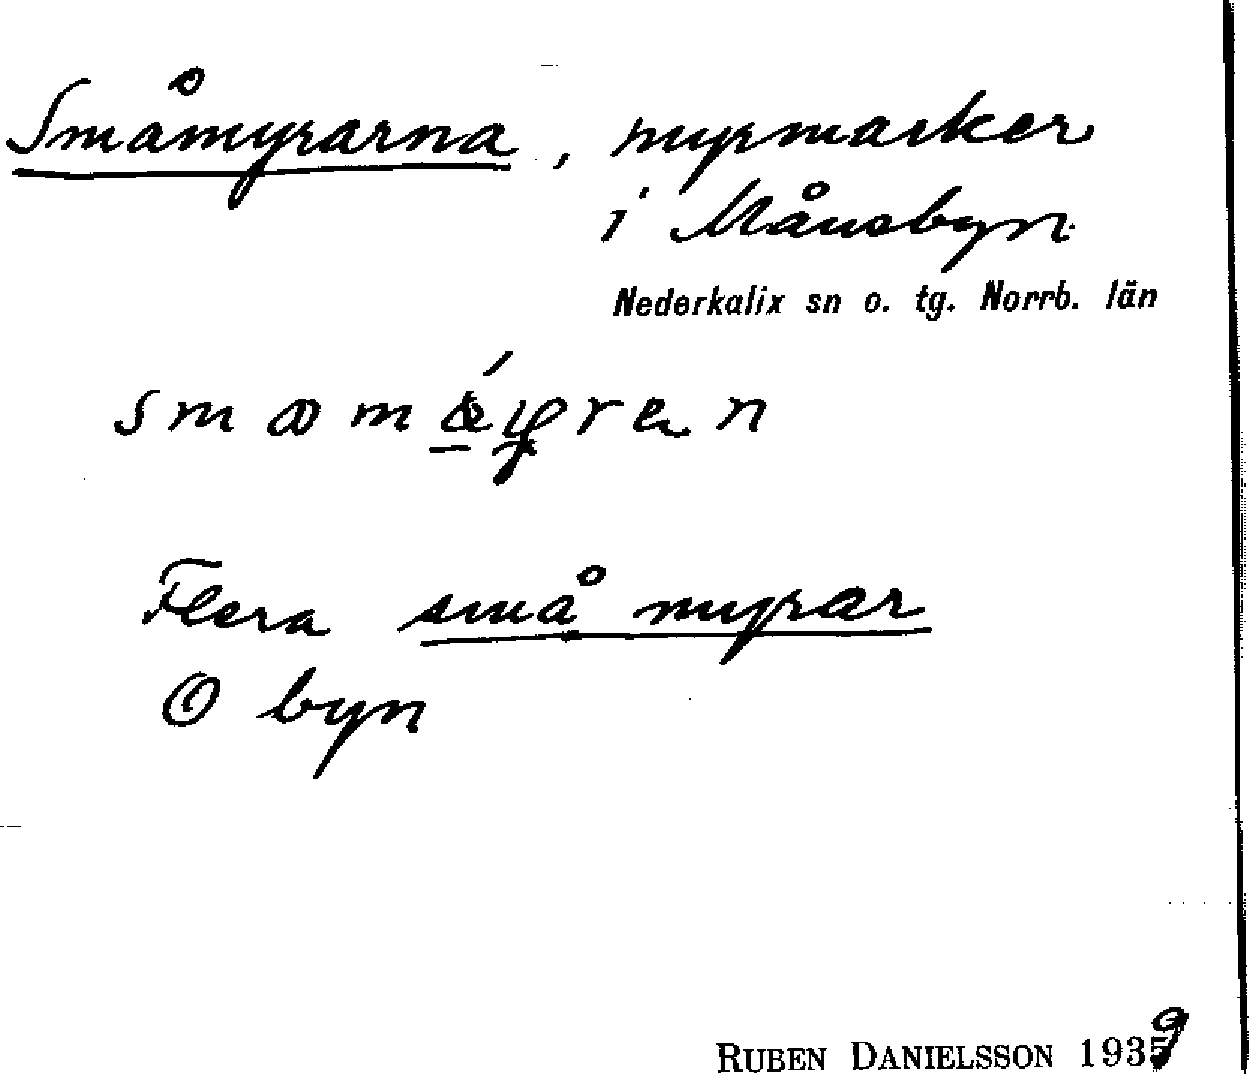 Småmyrarna, myrmarker
i Månsbyn
Nederkalix sn o. tg. Norrb. län
Flera små myrar
O byn
RUBEN DANIELSSON 1939